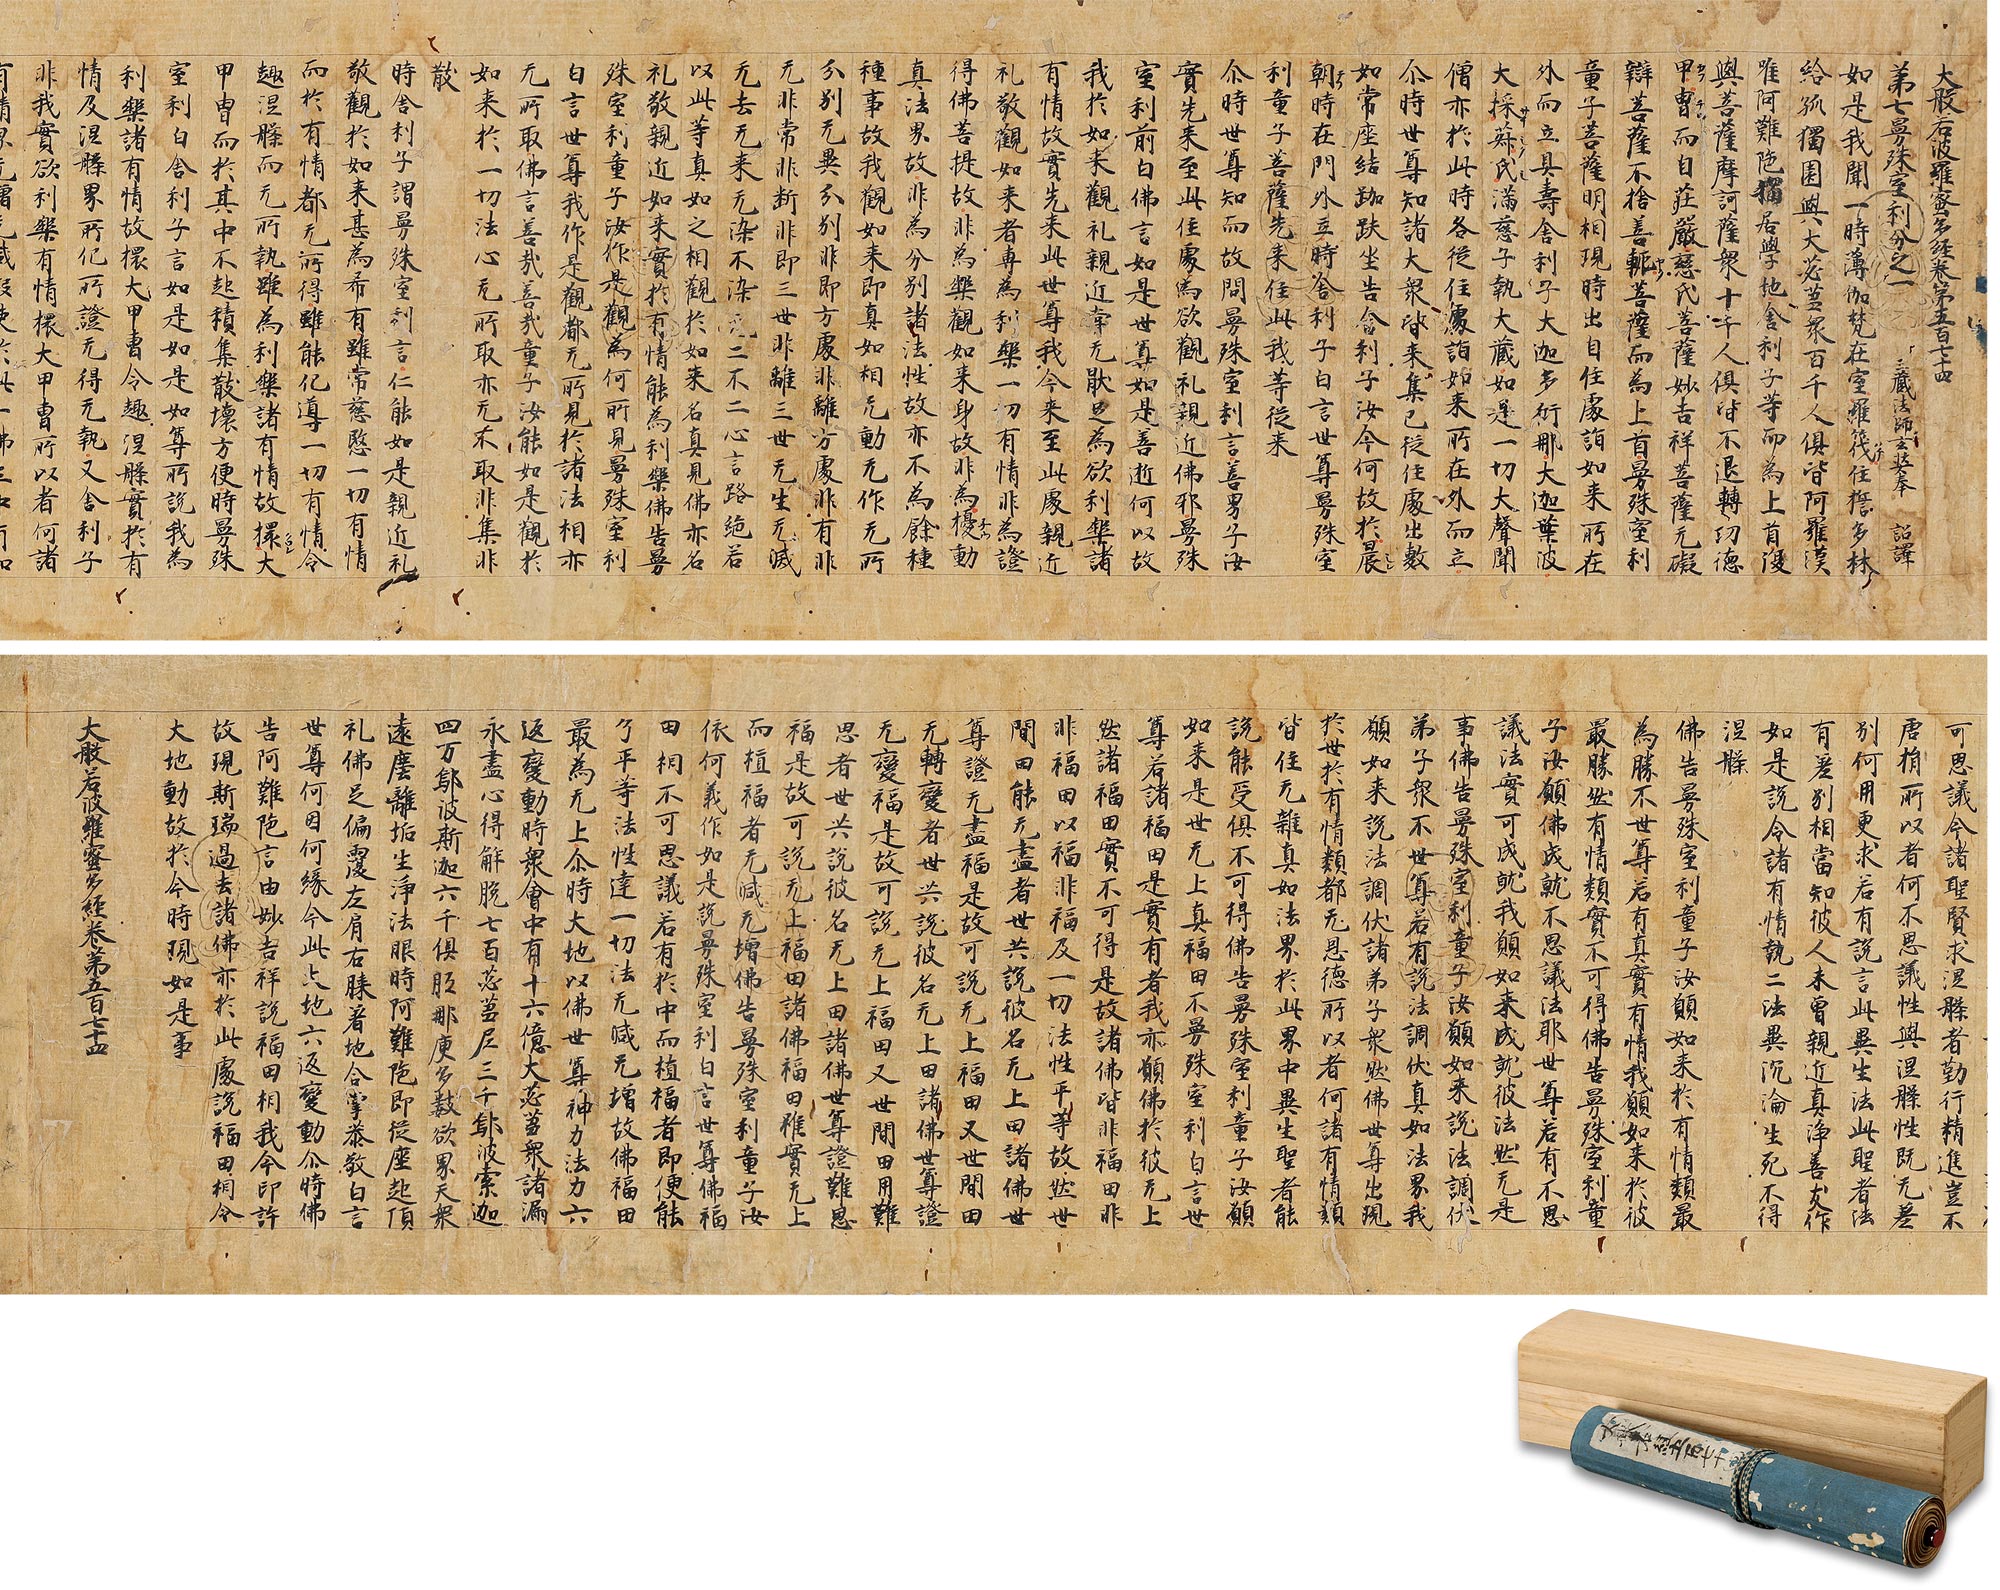 大般若波羅蜜多經卷第五百七十四
第七曼殊室利分之一　三藏法師玄奘奉　詔譯
如是我聞一時薄伽梵在室羅筏住誓多林
給孤獨園與大苾芻眾百千人俱皆阿羅漢
唯阿難陁獨居學地舍利子等而為上首復
與菩薩摩訶薩眾十千人俱皆不退轉功德
甲冑而自莊嚴慈氏菩薩妙吉祥菩薩无礙
辯菩薩不捨善軛菩薩而為上首曼殊室利
童子菩薩明相現時出自住處詣如来所在
外而立具壽舍利子大迦多衍那大迦葉波
大採菽氏滿慈子執大藏如是一切大聲聞
僧亦於此時各從住處詣如来所在外而立
尒時世尊知諸大衆皆来集已從住處出敷
如常座結跏趺坐告舍利子汝今何故於晨
朝時在門外立時舍利子白言世尊曼殊室
利童子菩薩先来住此我等從来
尒時世尊知而故問曼殊室利言善男子汝
實先来至此住處為欲觀礼親近佛耶曼殊
室利前白佛言如是世尊如是善逝何以故
我於如来觀礼親近甞无猒足為欲利樂諸
有情故實先来此世尊我今来至此處親近
礼敬觀如来者專為利樂一切有情非為證
得佛菩提故非為樂觀如来身故非為擾動
真法界故非為分別諸法性故亦不為餘種
種事故我觀如来即真如相无動无作无所
分別无異分別非即方處非離方處非有非
无非常非斷非即三世非離三世无生无滅
无去无来无染不染无二不二心言路絶若
以此等真如之相觀於如来名真見佛亦名
礼敬親近如来實於有情能為利樂佛告曼
殊室利童子汝作是觀為何所見曼殊室利
白言世尊我作是觀都无所見於諸法相亦
无所取佛言善哉善哉童子汝能如是觀於
如来於一切法心无所取亦无不取非集非
散
時舍利子謂曼殊室利言仁能如是親近礼
敬觀於如来甚為希有雖常慈愍一切有情
而於有情都无所得雖能化導一切有情令
趣涅槃而无所執雖為利樂諸有情故擐大
甲冑而於其中不起積集散壞方便時曼殊
室利白舍利子言如是如是如尊所說我為
利樂諸有情故擐大甲冑令趣涅槃實於有
情及涅槃界所化所證无得无執又舍利子
非我實欲利樂有情擐大甲冑所以者何諸
可思議今諸聖賢求涅槃者勤行精進豈不
唐捐所以者何不思議性與涅槃性既无差
別何用更求若有說言此異生法此聖者法
有差別相當知彼人未曾親近真淨善友作
如是說令諸有情執二法異沉淪生死不得
涅槃
佛告曼殊室利童子汝願如来於有情類最
為勝不世尊若有真實有情我願如来於彼
最勝然有情類實不可得佛告曼殊室利童
子汝願佛成就不思議法耶世尊若有不思
議法實可成就我願如来成就彼法然无是
事佛告曼殊室利童子汝願如来說法調伏
弟子衆不世尊若有說法調伏真如法界我
願如来說法調伏諸弟子衆然佛世尊出現
於世於有情類都无恩德所以者何諸有情類
皆住无雜真如法界於此界中異生聖者能
說能受俱不可得佛告曼殊室利童子汝願
如来是世无上真福田不曼殊室利白言世
尊若諸福田是實有者我亦願佛於彼无上
然諸福田實不可得是故諸佛皆非福田非
非福田以福非福及一切法性平等故然世
間田能无盡者世共說彼名无上田諸佛世
尊證无盡福是故可說无上福田又世間田
无轉變者世共說彼名无上田諸佛世尊證
无變福是故可說无上福田又世間田用難
思者世共說彼名无上田諸佛世尊證難思
福是故可說无上福田諸佛福田雖實无上
而植福者无減无增佛告曼殊室利童子汝
依何義作如是說曼殊室利白言世尊佛福
田相不可思議若有於中而植福者即便能
了平等法性達一切法无減无增故佛福田
最為无上尒時大地以佛世尊神力法力六
返變動時衆會中有十六億大苾芻衆諸漏
永盡心得解脫七百苾芻尼三千鄔波索迦
四万鄔波斯迦六千俱胝那庾多數欲界天衆
遠塵離垢生淨法眼時阿難陁即從座起頂
礼佛足偏覆左肩右膝著地合掌恭敬白言
世尊何因何緣今此大地六返變動尒時佛
告阿難陁言由妙吉祥說福田相我今印許
故現斯瑞過去諸佛亦於此處說福田相令
大地動故於今時現如是事
大般若波羅蜜多經卷第五百七十四